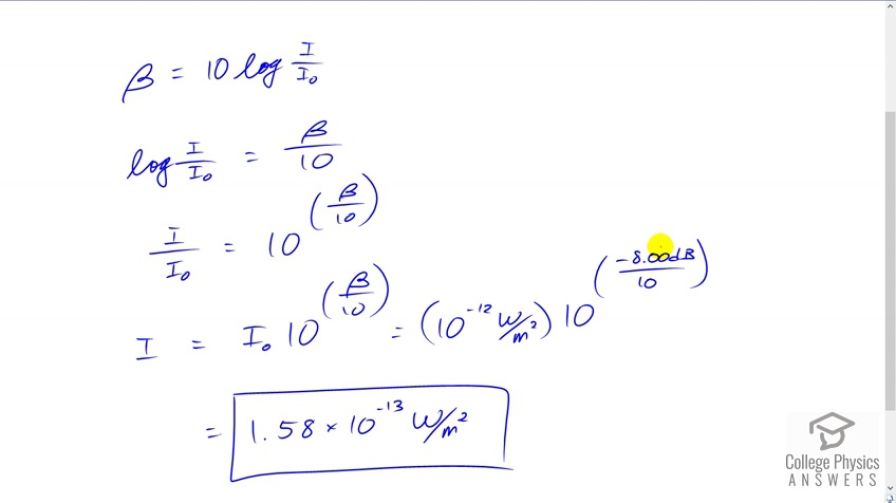 β = 10 log I/I₀
log I/I₀ = β/10
I/I₀ = 10^(β/10)
I = I₀ 10^(β/10) = (10⁻¹² W/m²) 10^(-8.00dB/10)
= 1.58 × 10⁻¹³ W/m²
College Physics
ANSWERS